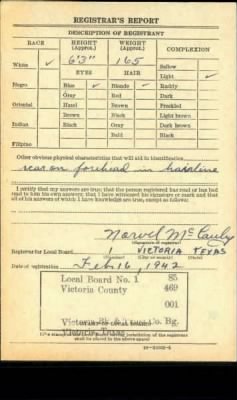 REGISTRAR'S REPORT
DESCRIPTION OF REGISTRANT
RACE HEIGHT (Approx.) WEIGHT (Approx.) COMPLEXION
White ✓ 6'3" 165 Sallow
EYES HAIR Light ✓
Negro Blue ✓ Blonde ✓ Ruddy
Gray Red Dark
Oriental Hazel Brown Freckled
Brown Black Light brown
Indian Black Gray Dark brown
Bald Black
Filipino
Other obvious physical characteristics that will aid in identification
scar on forehead in hairline
I certify that my answers are true; that the person registered has read or has had
read to him his own answers; that I have witnessed his signature or mark and that
all of his answers of which I have knowledge are true, except as follows:
Norvel McCauly
(Signature of registrar)
Registrar for Local Board VICTORIA TEXAS
(Number) (City or county) (State)
Date of registration Feb 16, 1942
Local Board No. 1 85
Victoria County 469
001
Victoria Bk. & Trust Co. Bg.
Victoria, Texas
(STAMP OF LOCAL BOARD)
shall be placed in the above space)